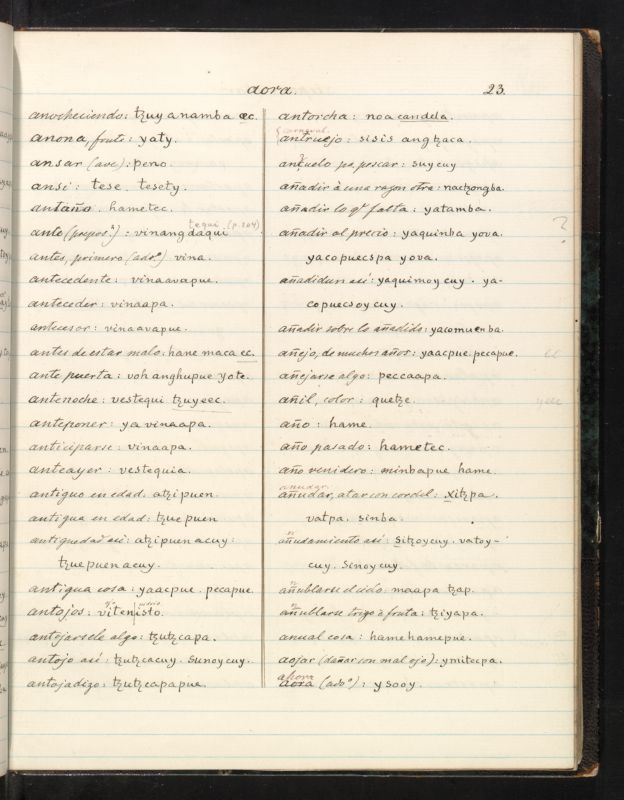 aora. 23.
anocheciendo: tzuyanamba ec.
anona, fruto: yaty.
ansar (ave): peno.
ansi: tese. tesety.
antaño. hametec.
tequi (p. 204)
ante (prepos.ⁿ): vinangdaqui
antes, primero (adv.º) vina.
antecedente: vinaavapue.
anteceder: vinaapa.
antecesor: vinaavapue.
antes de estar malo: hane maca ec.
ante puerta: voh anghupue yote.
antenoche: vestequi tzuyeec.
anteponer: ya vinaapa.
anticiparse: vinaapa.
anteayer: vestequia.
antiguo en edad. atzipuen.
antigua en edad: tzuepuen
antiguedad asi: atzipuenacuy:
tzuepuenacuy.
antigua cosa: yaacpue. pecapue.
antojos: vitenisto.
antojarsele algo: tzutzcapa.
antojo asi: tzutzcacuy. sunoycuy.
antojadizo: tzutzcapapue.
antorcha: noacandela.
carneval.
antruejo: sisis angtzaca.
anzuelo pa. pescar: suycuy
añadir à una razon otra: nactzongba.
añadir lo q.ᵉ falta: yatamba.
añadir al precio: yaquinba yova. ?
yacopuecspa yova.
añadidura asi: yaquimoycuy. ya-
copuecsoycuy.
añadir sobre lo añadido: yacomuenba.
añejo, de muchos años: yaacpue. pecapue.
añejarse algo: peccaapa.
añil, color: quetze.
año: hame.
año pasado: hametec.
año venidero: minbapue hame.
anudar.
añudar, atar con cordel: xitzpa.
vatpa. sinba.
añudamiento asi: sitzoycuy. vatoy-
cuy. sinoycuy.
añublarse el cielo: maapa tzap.
añublarse trigo à fruta: tziyapa.
anual cosa: hamehamepue.
aojar (dañar con mal ojo): ymitecpa.
ahora
aora (adv.º): ysooy.